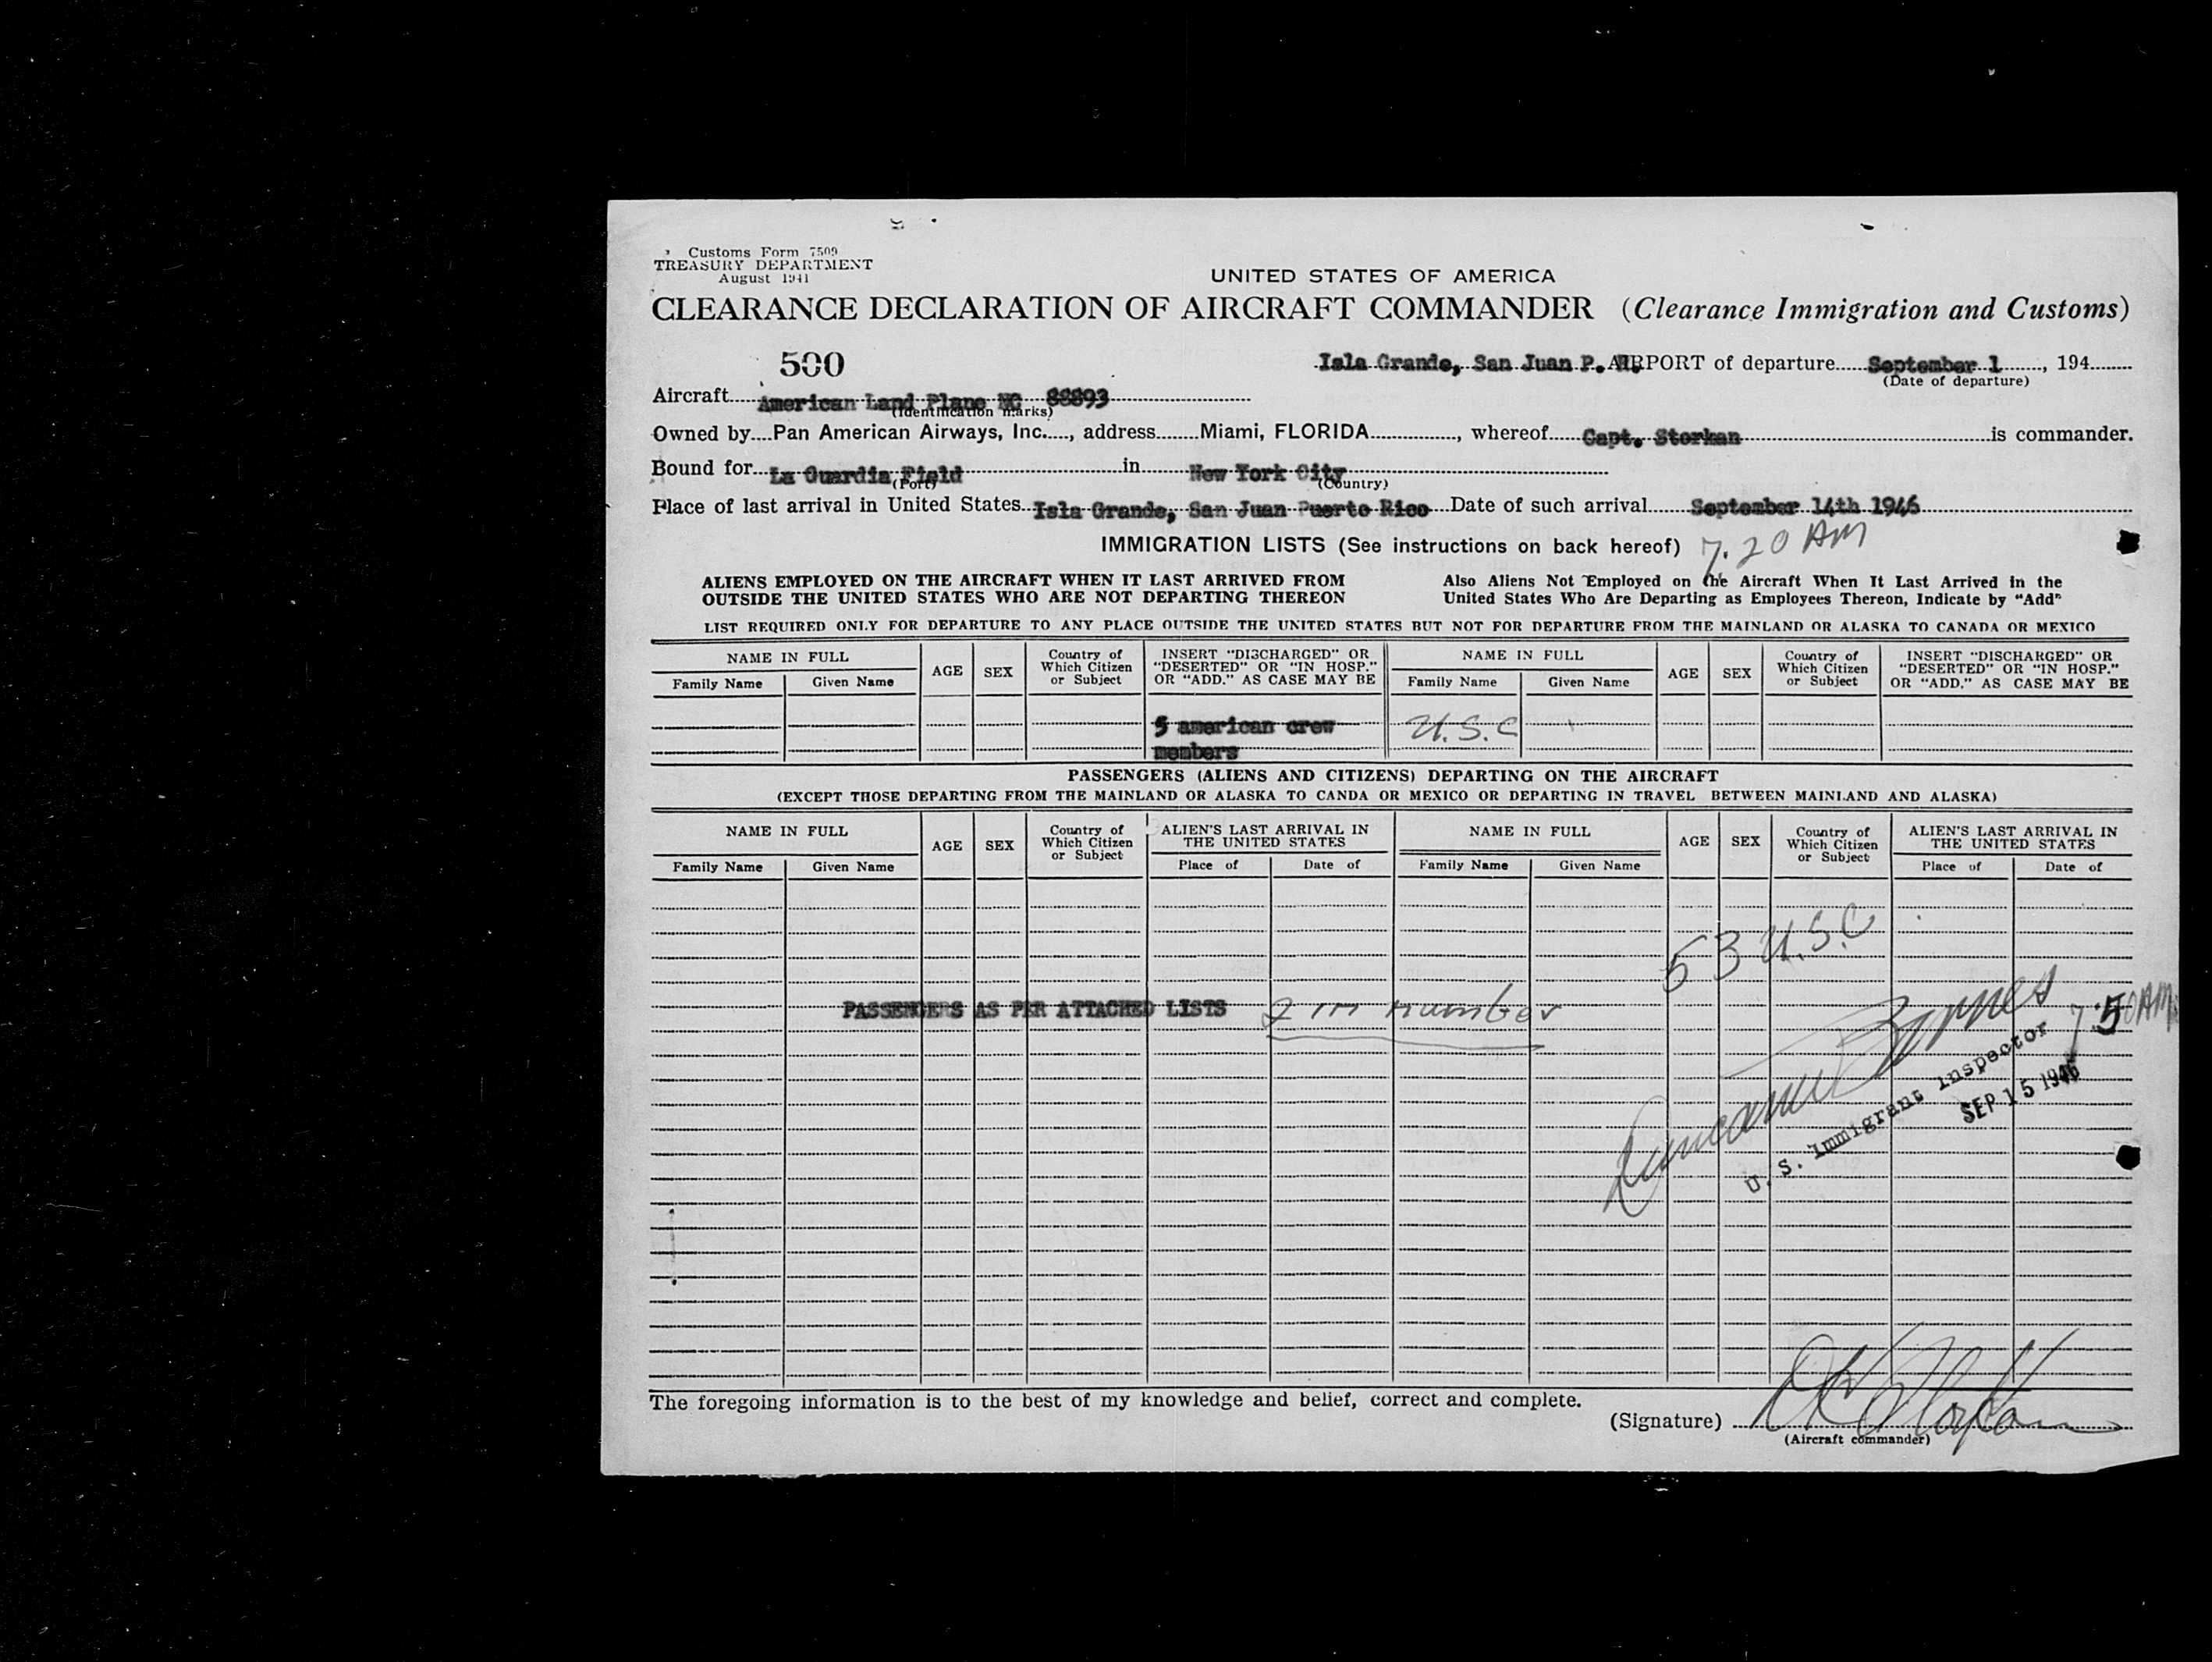 Customs Form 7509
TREASURY DEPARTMENT
August 1941
UNITED STATES OF AMERICA
CLEARANCE DECLARATION OF AIRCRAFT COMMANDER (Clearance Immigration and Customs)
500
Isla Grande, San Juan P. R. AIRPORT of departure September 1, 194
(Date of departure)
Aircraft American Land Plane NC 88893
(Identification marks)
Owned by Pan American Airways, Inc., address Miami, FLORIDA, whereof Capt. Storkan is commander.
Bound for La Guardia Field in New York City
(Port) (Country)
Place of last arrival in United States Isla Grande, San Juan Puerto Rico Date of such arrival September 14th 1946
IMMIGRATION LISTS (See instructions on back hereof) 7.20 AM
ALIENS EMPLOYED ON THE AIRCRAFT WHEN IT LAST ARRIVED FROM OUTSIDE THE UNITED STATES WHO ARE NOT DEPARTING THEREON
Also Aliens Not Employed on the Aircraft When It Last Arrived in the United States Who Are Departing as Employees Thereon, Indicate by "Add"
LIST REQUIRED ONLY FOR DEPARTURE TO ANY PLACE OUTSIDE THE UNITED STATES BUT NOT FOR DEPARTURE FROM THE MAINLAND OR ALASKA TO CANADA OR MEXICO
NAME IN FULL AGE SEX Country of Which Citizen or Subject INSERT "DISCHARGED" OR "DESERTED" OR "IN HOSP." OR "ADD." AS CASE MAY BE NAME IN FULL AGE SEX Country of Which Citizen or Subject INSERT "DISCHARGED" OR "DESERTED" OR "IN HOSP." OR "ADD," AS CASE MAY BE
Family Name Given Name Family Name Given Name
5 american crew U.S.C
members
PASSENGERS (ALIENS AND CITIZENS) DEPARTING ON THE AIRCRAFT
(EXCEPT THOSE DEPARTING FROM THE MAINLAND OR ALASKA TO CANDA OR MEXICO OR DEPARTING IN TRAVEL BETWEEN MAINLAND AND ALASKA)
NAME IN FULL AGE SEX Country of Which Citizen or Subject ALIEN'S LAST ARRIVAL IN THE UNITED STATES NAME IN FULL AGE SEX Country of Which Citizen or Subject ALIEN'S LAST ARRIVAL IN THE UNITED STATES
Family Name Given Name Place of Date of Family Name Given Name Place of Date of
53 U.S.C
PASSENGERS AS PER ATTACHED LISTS 2 in number
7:50AM
U. S. Immigrant Inspector
SEP 15 1946
The foregoing information is to the best of my knowledge and belief, correct and complete.
(Signature)
(Aircraft commander)